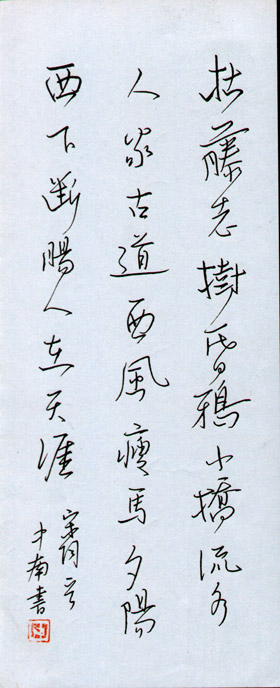 枯藤老樹昏鴉小橋流水
人家古道西風瘦馬夕陽
西下斷腸人在天涯
南書